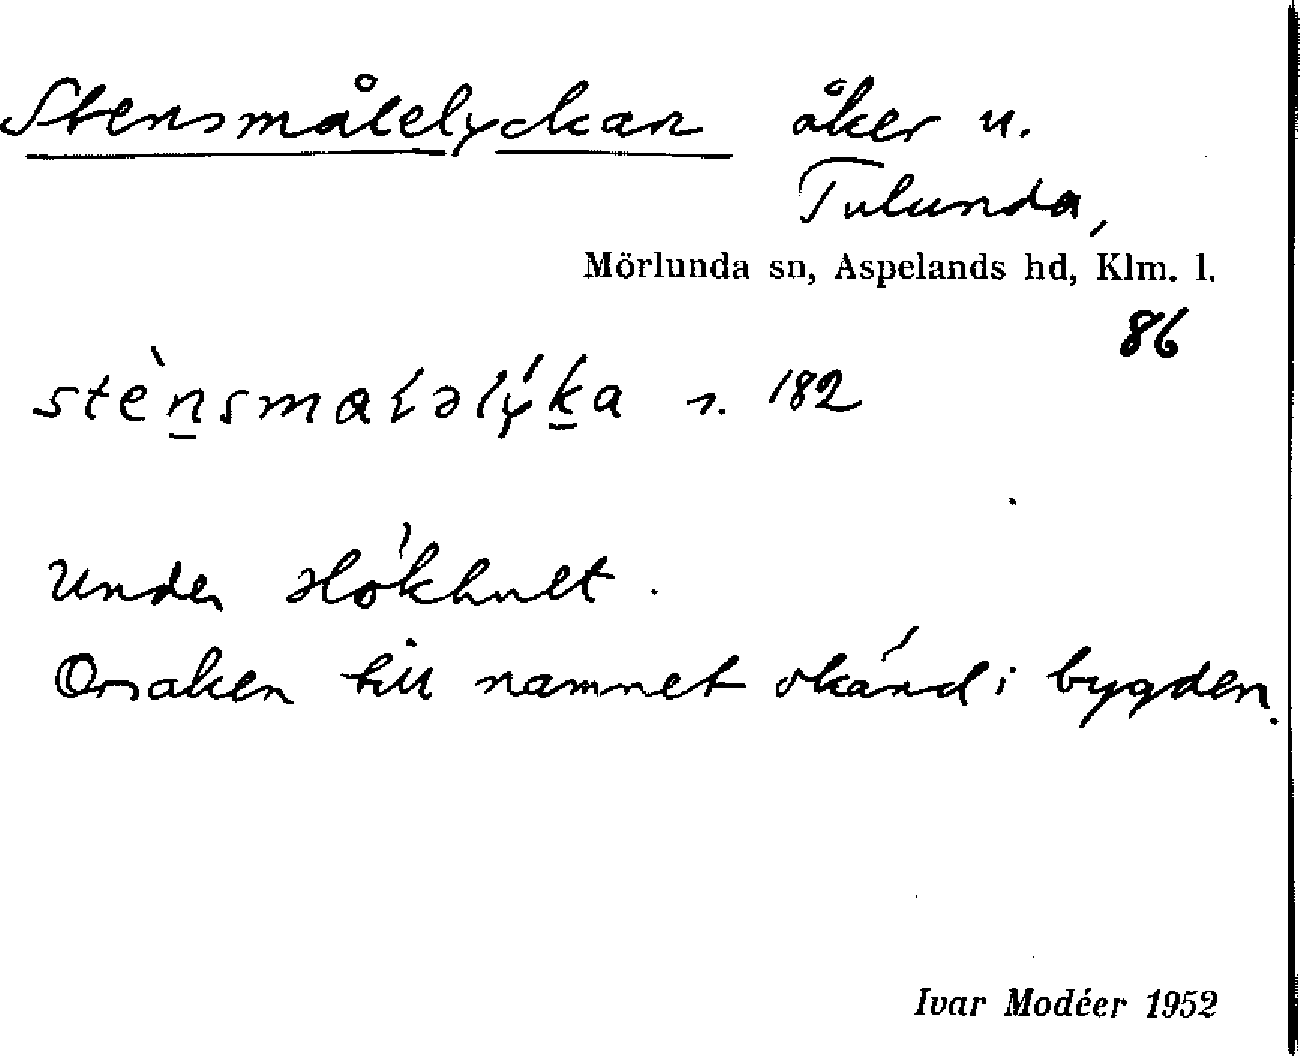 Stensmålelyckan åker u.
Tulunda,
Mörlunda sn, Aspelands hd, Klm. l.
86
stèn̠smaləlýk̠a s. 182
Under Hökhult.
Orsaken till namnet okänd i bygden.
Ivar Modéer 1952